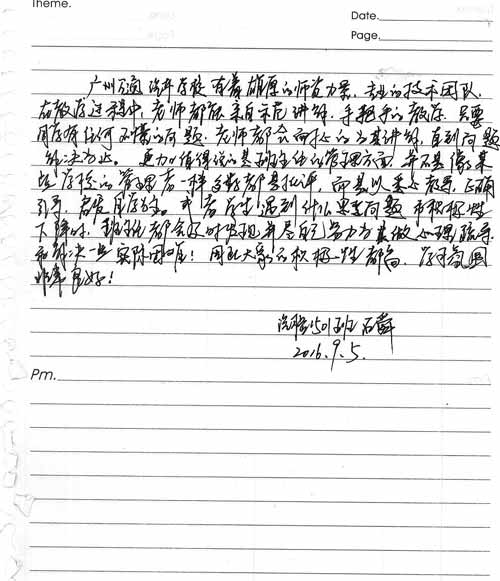 Theme.
Date.
Page.
广州万通汽车学校有着雄厚的师资力量，专业的技术团队，
在教学过程中，老师都能亲自示范讲解，手把手的教学，只要
同学有任何不懂的问题，老师都会面对面的为其讲解，直到问题
解决为止。更加值得说的是班主任的管理方面，并不是像某
些学校的管理者一样多数都是批评，而是以悉心教导，正确
引导，老生同学为主。若有学生遇到什么思想问题而积极性
下降时，班主任都会及时发现并尽自己努力为其做心理疏导
和解决一些实际困难！因此大家的积极性都高，学习氛围
非常良好！
汽修1501班 石舜
2016.9.5.
Pm.